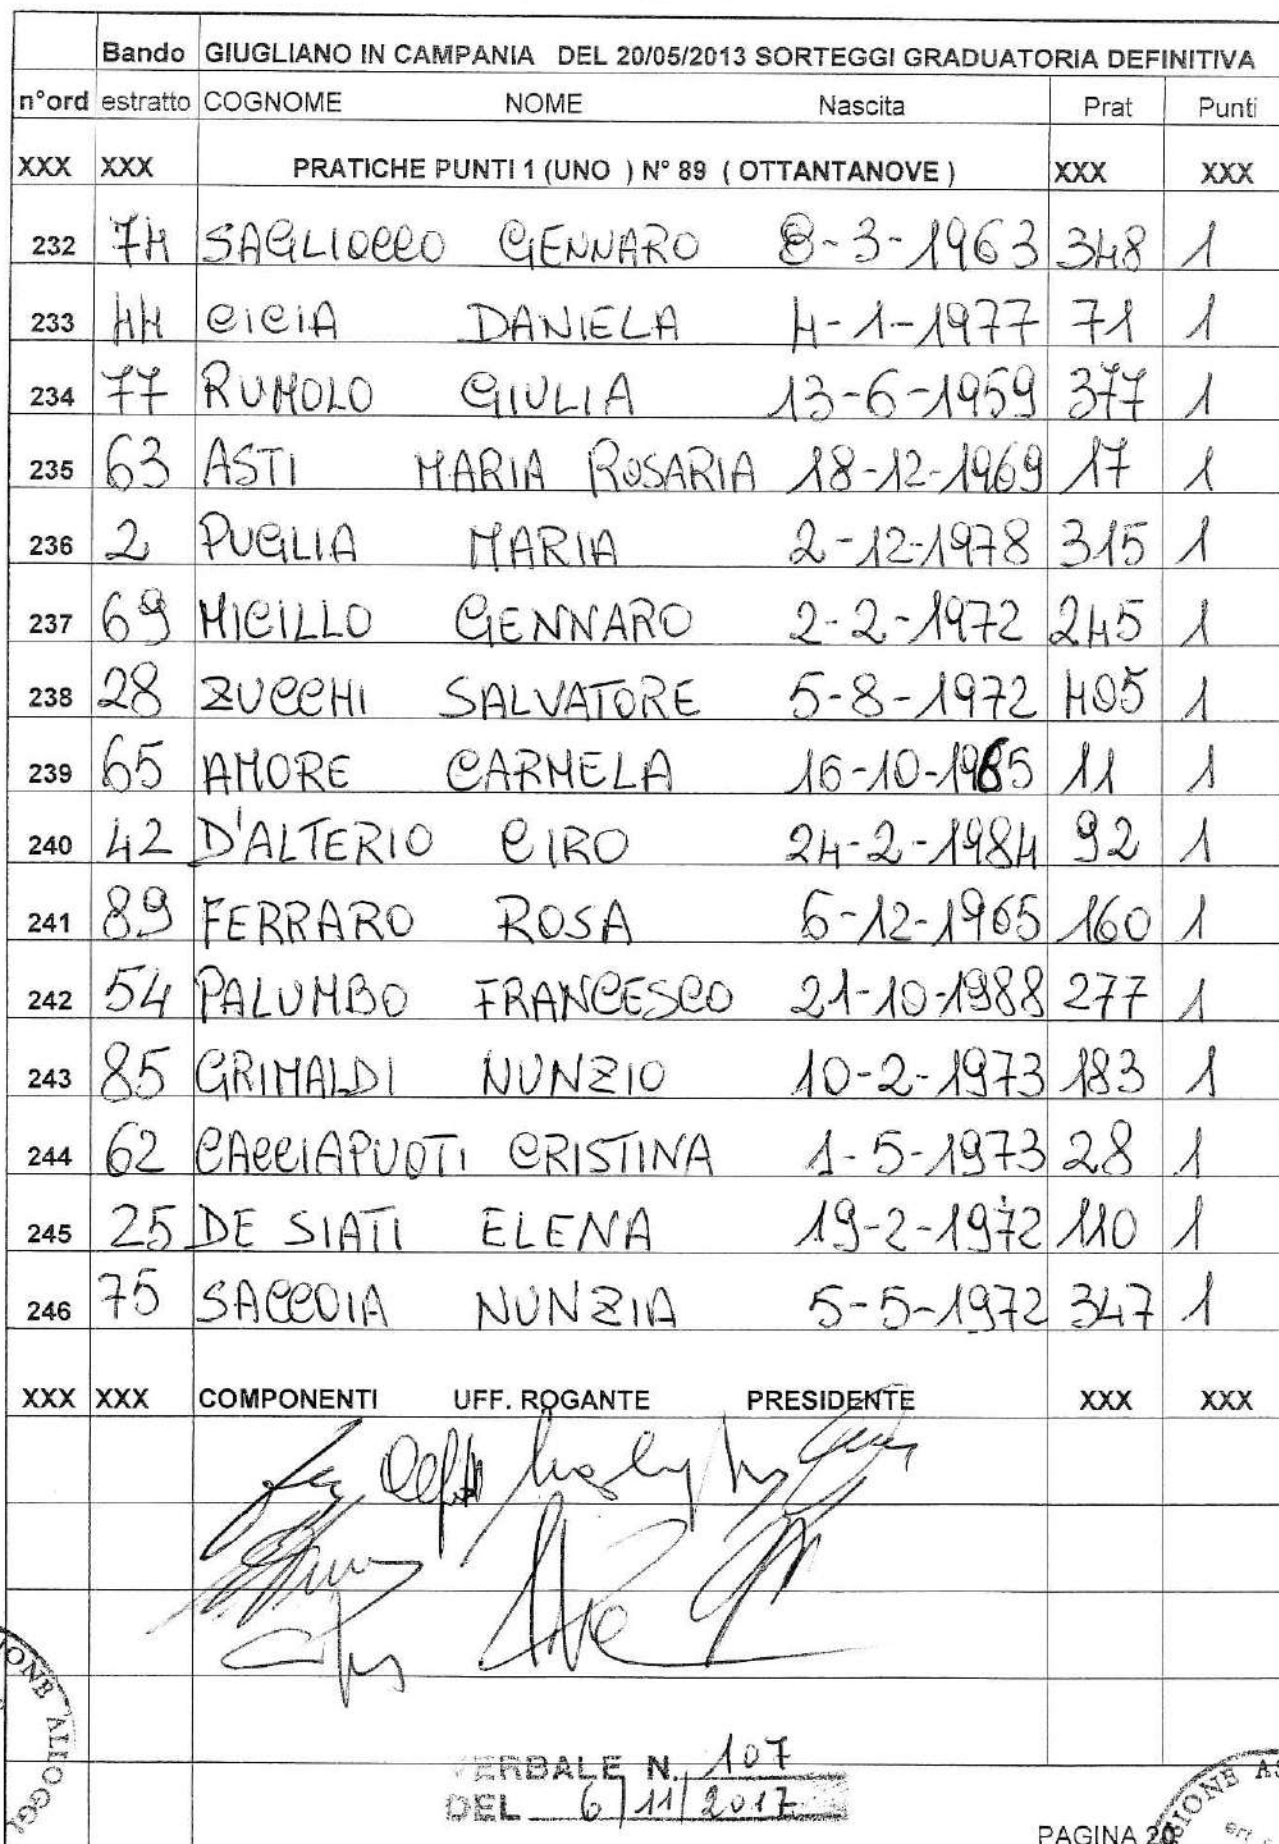 Bando GIUGLIANO IN CAMPANIA DEL 20/05/2013 SORTEGGI GRADUATORIA DEFINITIVA
n°ord estratto COGNOME NOME Nascita Prat Punti
XXX XXX PRATICHE PUNTI 1 (UNO ) N° 89 ( OTTANTANOVE ) XXX XXX
232 74 SAGLIOCCO GENNARO 8-3-1963 348 1
233 44 CICIA DANIELA 4-1-1977 71 1
234 77 RUMOLO GIULIA 13-6-1959 377 1
235 63 ASTI MARIA ROSARIA 18-12-1969 17 1
236 2 PUGLIA MARIA 2-12-1978 315 1
237 69 MICILLO GENNARO 2-2-1972 245 1
238 28 ZUCCHI SALVATORE 5-8-1972 405 1
239 65 AMORE CARMELA 16-10-1965 11 1
240 42 D'ALTERIO CIRO 24-2-1984 92 1
241 89 FERRARO ROSA 6-12-1965 160 1
242 54 PALUMBO FRANCESCO 21-10-1988 277 1
243 85 GRIMALDI NUNZIO 10-2-1973 183 1
244 62 CACCIAPUOTI CRISTINA 1-5-1973 28 1
245 25 DE SIATI ELENA 19-2-1972 110 1
246 75 SACCOIA NUNZIA 5-5-1972 347 1
XXX XXX COMPONENTI UFF. ROGANTE PRESIDENTE XXX XXX
VERBALE N. 107
DEL 6/11/2017
PAGINA 20